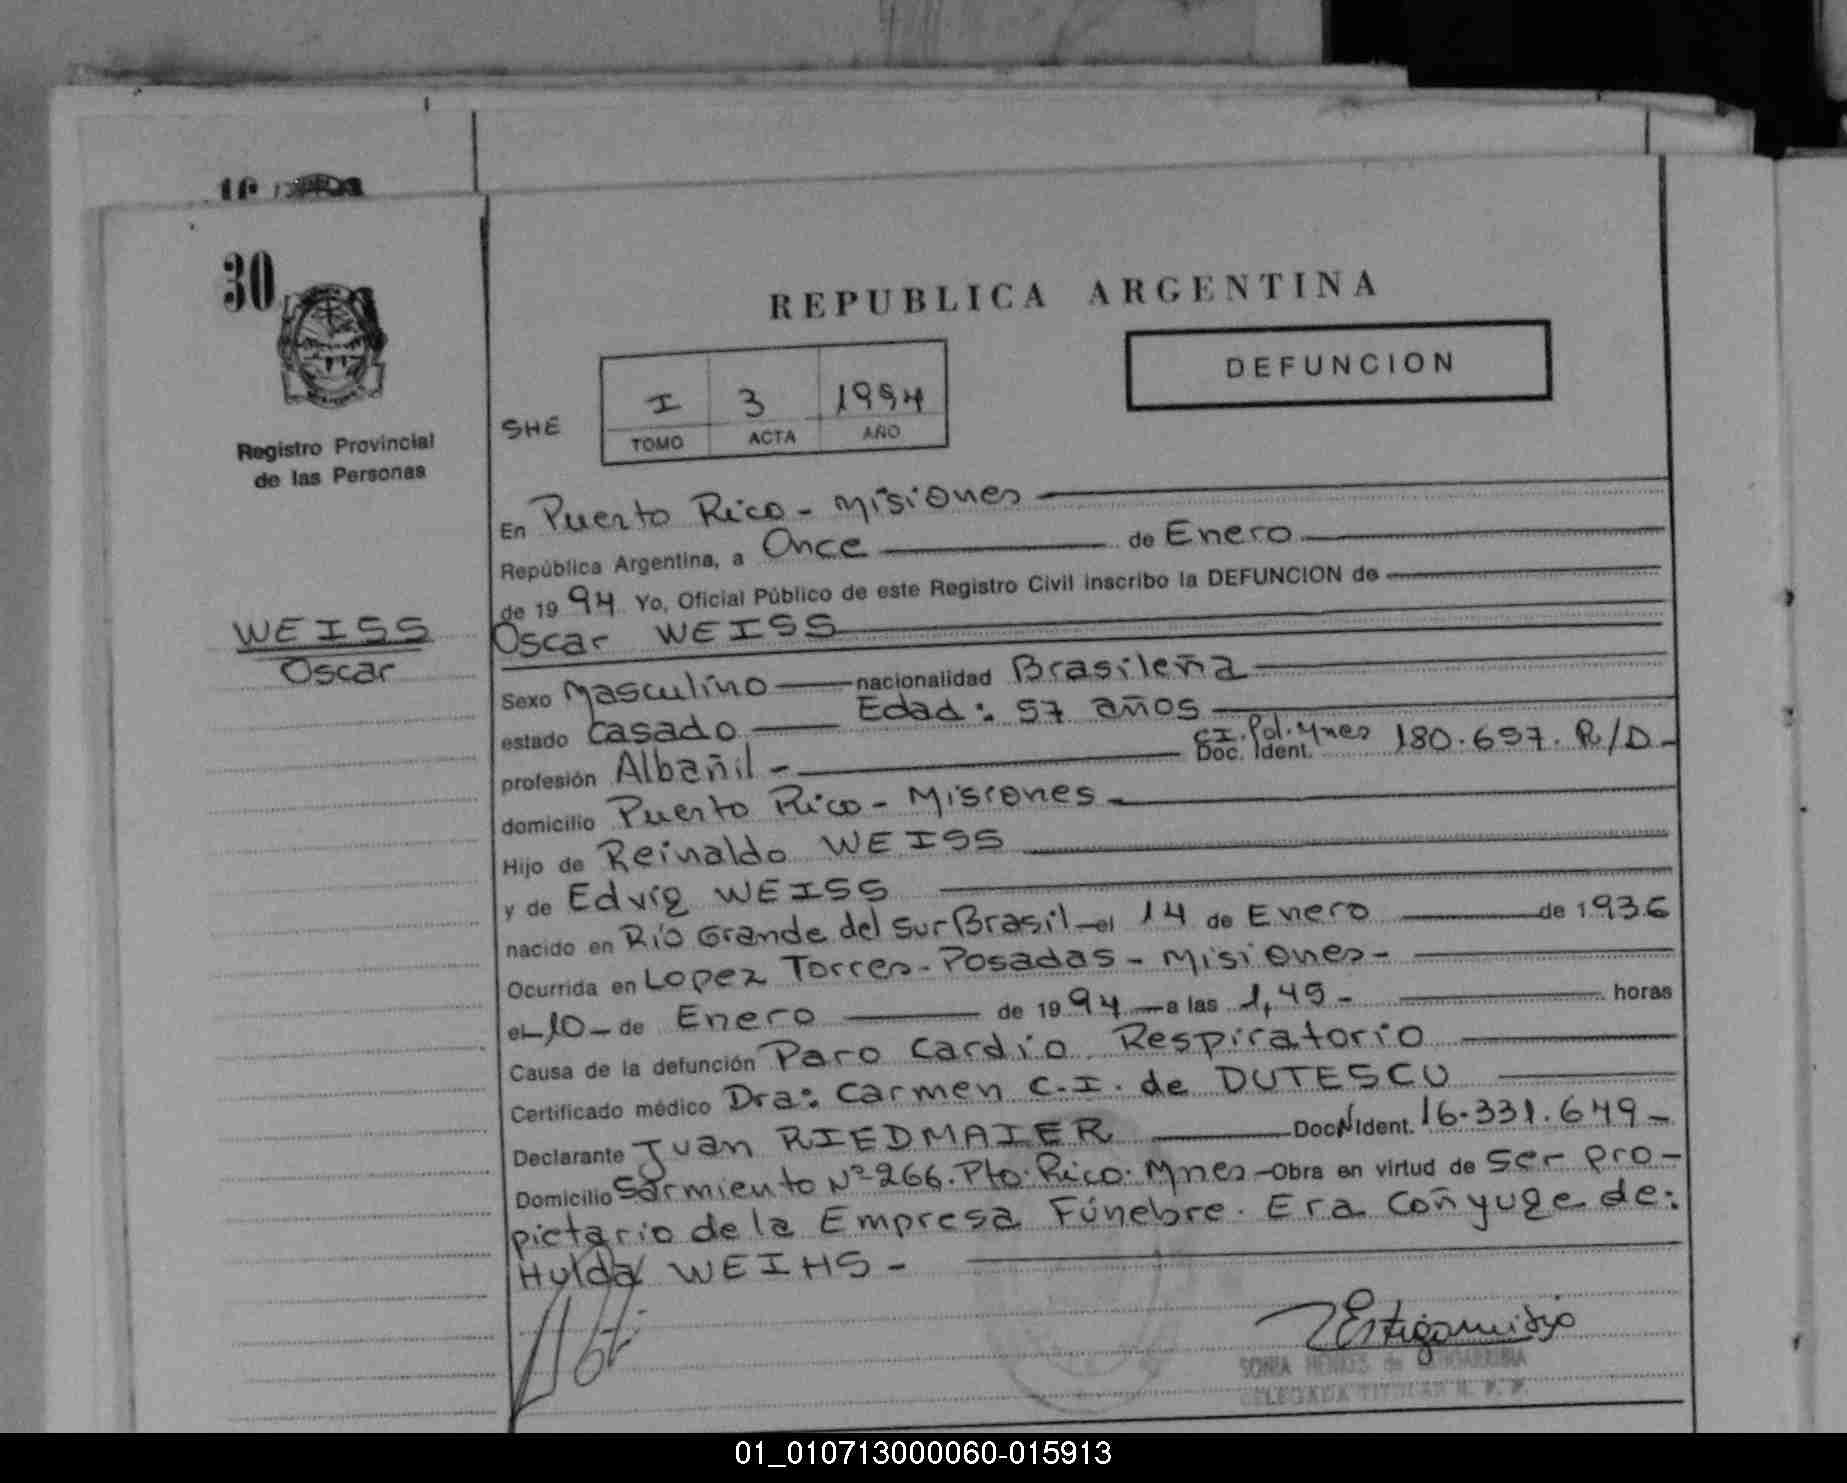 30
Registro Provincial
de las Personas
WEISS
Oscar
REPUBLICA ARGENTINA
DEFUNCION
SHE
I 3 1994
TOMO ACTA AÑO
En Puerto Rico - Misiones
República Argentina, a Once de Enero
de 1994 Yo, Oficial Público de este Registro Civil inscribo la DEFUNCION de
Oscar WEISS
Sexo Masculino nacionalidad Brasileña
estado Casado Edad: 57 años
profesión Albañil - C.I. Pol. Mnes Doc. Ident. 180.697. R/D-
domicilio Puerto Rico - Misiones -
Hijo de Reinaldo WEISS
y de Edvig WEISS
nacido en Río Grande del Sur Brasil - el 14 de Enero de 1936
Ocurrida en Lopez Torres - Posadas - Misiones -
el 10 - de Enero de 1994 a las 1,45 - horas
Causa de la defunción Paro Cardio Respiratorio
Certificado médico Dra: Carmen C.I. de DUTESCU
Declarante Juan RIEDMAIER Doc. N Ident. 16.331.649 -
Domicilio Sarmiento Nº 266. Pto. Rico. Mnes - Obra en virtud de ser pro-
pietario de la Empresa Fúnebre. Era Coñyuge de:
Hulda WEIHS -
SONIA
DELEGADA TITULAR R. P. P.
01_010713000060-015913